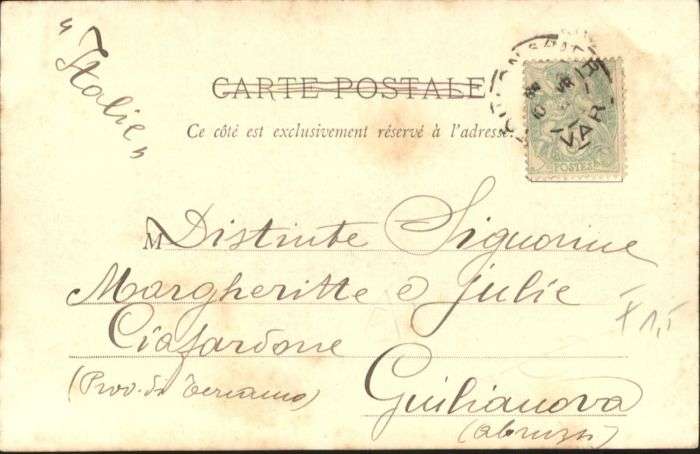 "Italie"
CARTE POSTALE
Ce côté est exclusivement réservé à l'adresse.
VAR
POSTES
M Distinte Signorine
Margheritte e Julie
Ciafardone
(Prov. di Teramo) Guilianova
(Abruzzi)